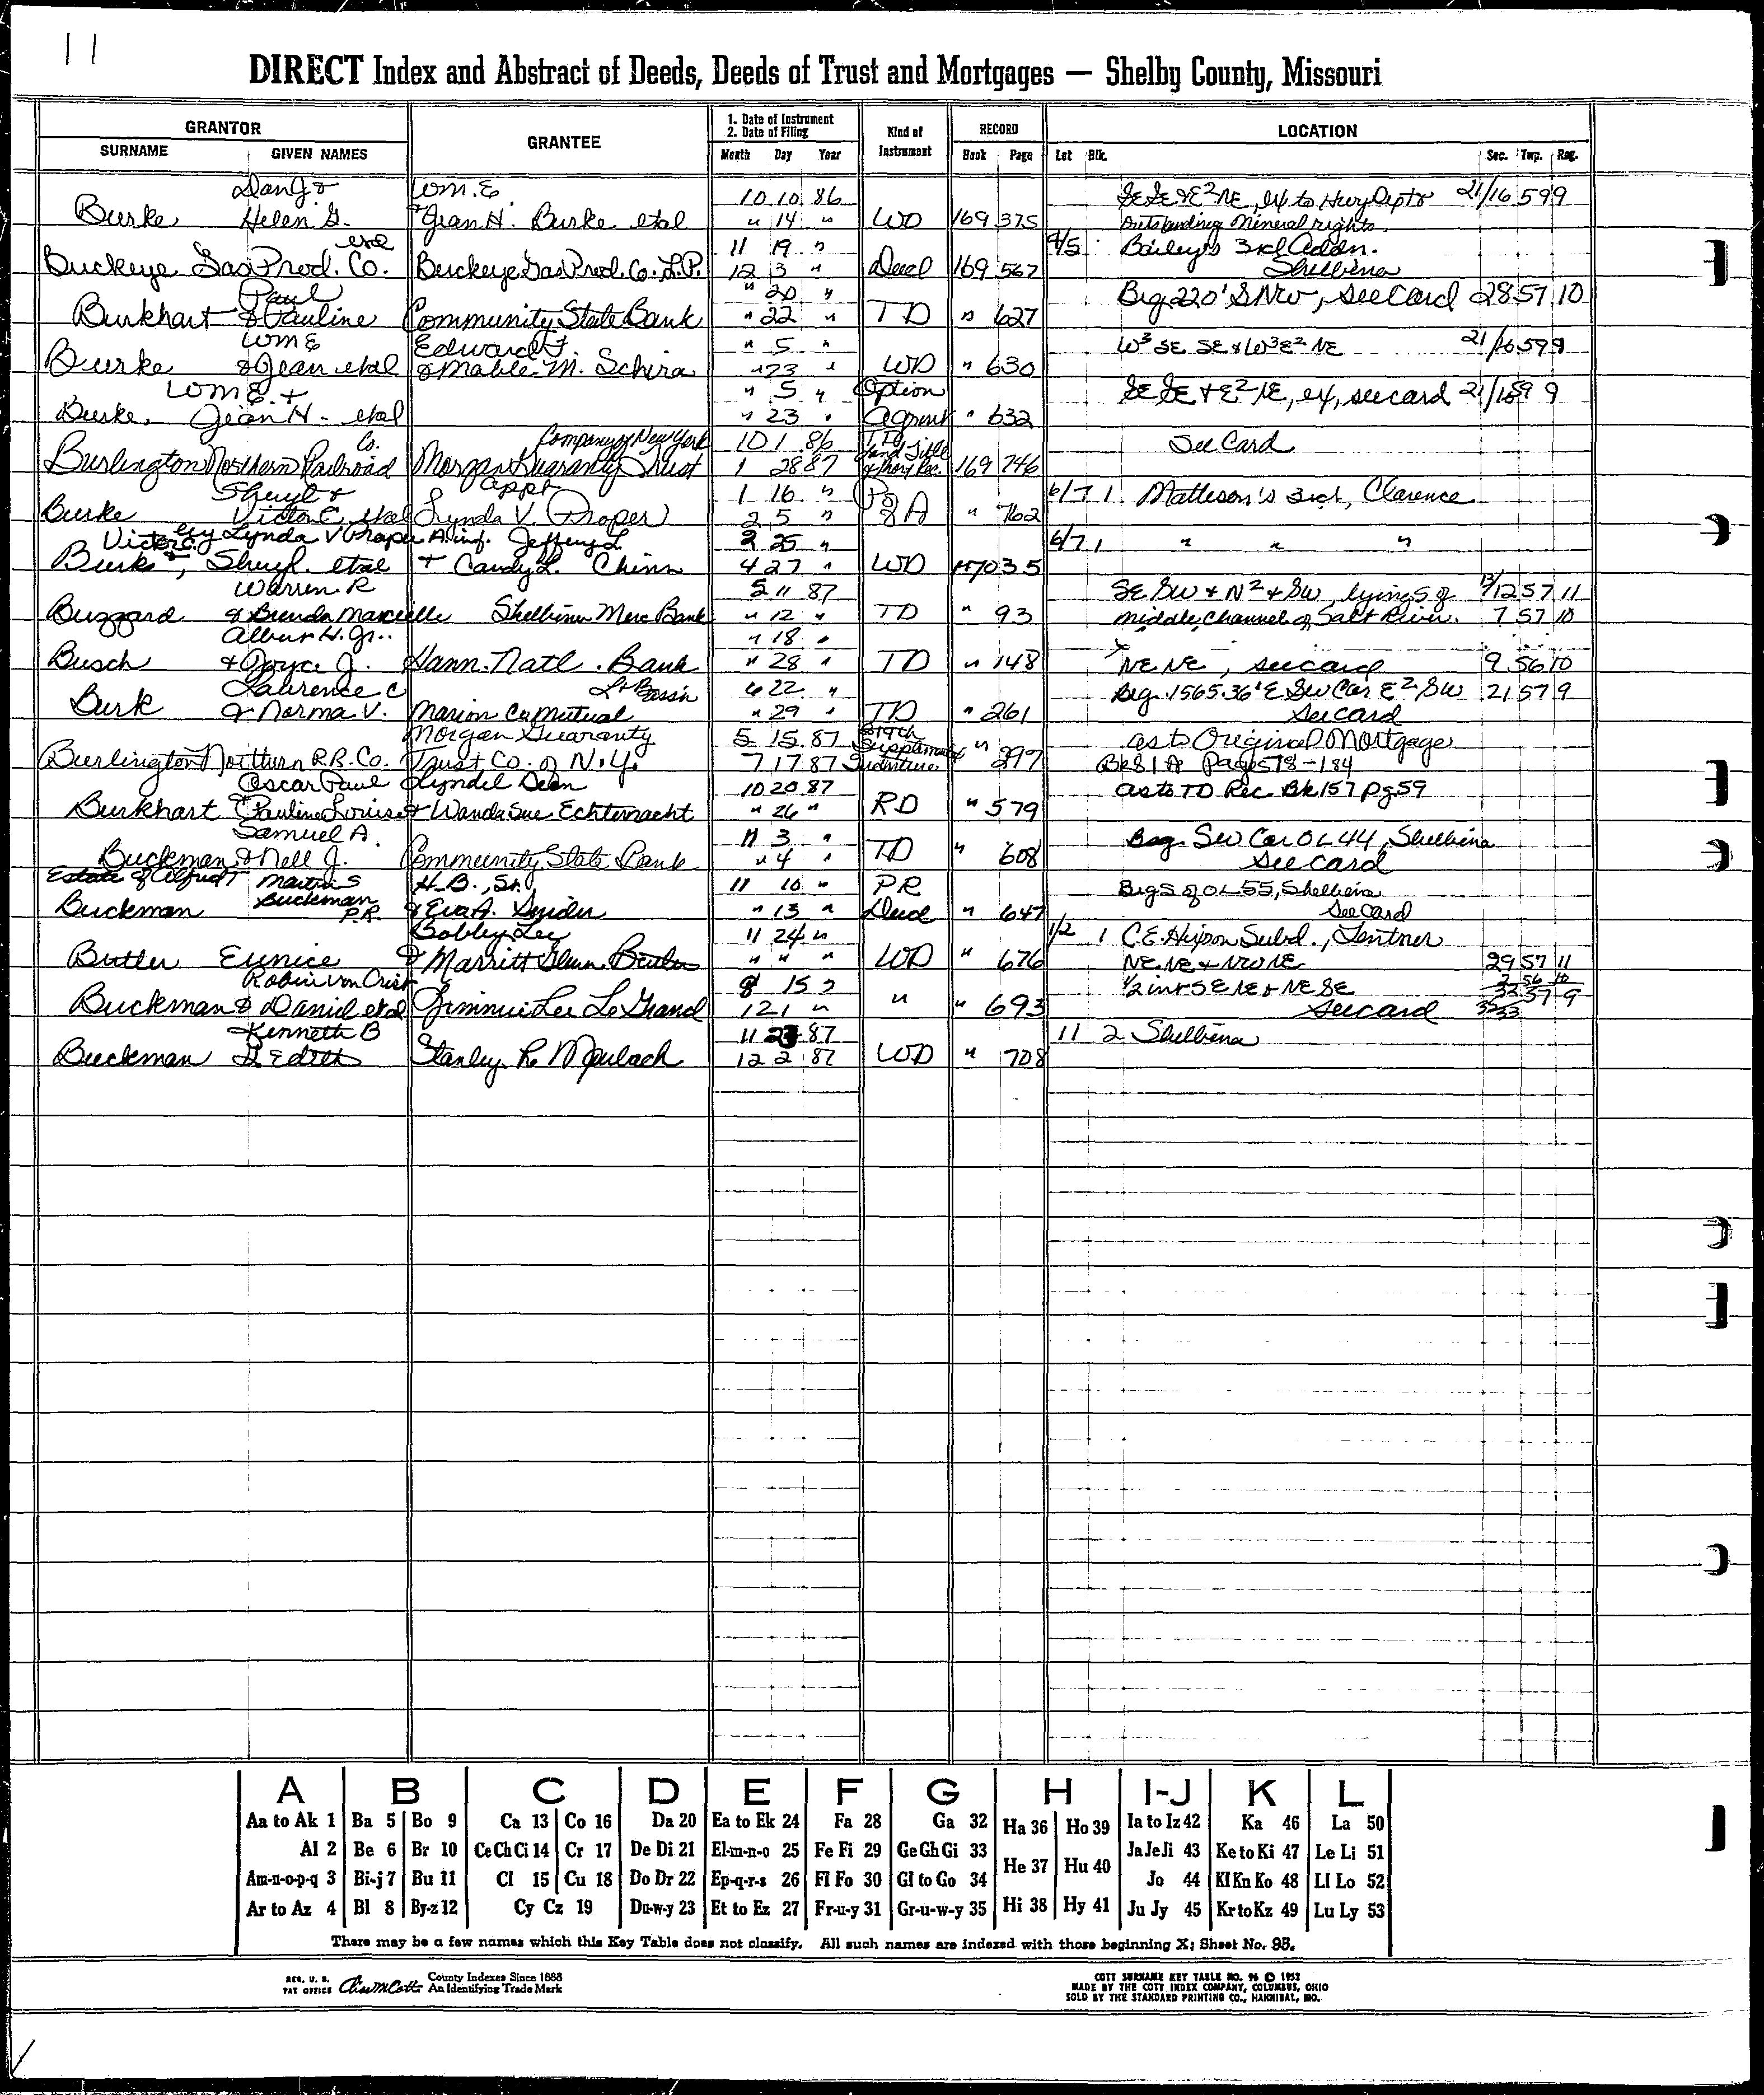 11
DIRECT Index and Abstract of Deeds, Deeds of Trust and Mortgages — Shelby County, Missouri
GRANTOR
SURNAME GIVEN NAMES
GRANTEE
1. Date of Instrument
2. Date of Filing
Month Day Year
Kind of Instrument
RECORD
Book Page
LOCATION
Lot Blk. Sec. Twp. Rng.
Dan J & Wm. E. 10 10 86 SE SE & E2 NE, ex to Hwy Dept & 21/16 59 9
Burke Helen G. & Jean H. Burke etal " 14 " WD 169 375 outstanding mineral rights.
etal 11 19 " 4/5 Bailey's 3rd Addn.
Buckeye Gas Prod. Co. Buckeye Gas Prod. Co. L.P. 12 3 " Deed 169 567 Shelbina
Paul " 20 " Beg. 220' S NW, see Card 28 57 10
Burkhart & Pauline Community State Bank " 22 " TD " 627
Wm E Edward F. " 5 " W3 SE SE & W3 E2 NE 21/16 59 9
Burke & Jean etal & Mable M. Schira " 23 " WD " 630
Wm E. & " 5 " Option SE SE & E2 NE, ex, see card 21/16 59 9
Burke, Jean H - etal " 23 " Agrmt " 632
Co. Company of New York 10 1 86 T, D, Land Title See Card
Burlington Northern Railroad Morgan Guaranty Trust 1 28 87 & Mory Rec. 169 746
Sheryl & appt 1 16 " 6/7 1 Matteson's 3rd, Clarence
Burke Victor C. etal Lynda V. Draper 2 5 " P of A " 762
Victor C. by Lynda V Draper A. inf. Jeffery L 2 25 " 6/7 1 " " "
Burke, Sheryl etal & Candy L. Chinn 4 27 " WD 170 35
Warren R 5 11 87 SE SW & N2 & SW, lying S of 13/12 57 11
Buzzard & Brenda Marcielle Shelbina Merc Bank " 12 " TD " 93 middle channel of Salt River. 7 57 10
Albert H. Jr. " 18 "
Busch & Joyce J. Hann. Natl. Bank " 28 " TD " 148 NE NE, see card 9 56 10
Lawrence C L & B Assn 6 22 " Beg. 1565.36' E SW Cor E2 SW 21 57 9
Burk & Norma V. Marion Co Mutual " 29 " TD " 261 See card
Morgan Guaranty 5 15 87 Supplemental " as to Original Mortgage
Burlington Northern R.R. Co. Trust Co. of N.Y. 7 17 87 Indenture 297 Bk 81 A Pages 78-184
Oscar Paul Lyndel Dean 10 20 87 as to TD Rec Bk 157 pg 59
Burkhart & Pauline Louise & Wanda Sue Echternacht " 26 " RD " 579
Samuel A. 11 3 " Beg SW Cor OL 44, Shelbina
Buckman & Nell J. Community State Bank " 4 " TD " 608 See Card
Estate of Alfred T Martin S H. B., Sr. 11 10 " PR Beg S of OL 55, Shelbina
Buckman Buckman P.R. & Eva A. Snider " 13 " Deed " 647 See Card
Bobby Lee 11 24 " 1/2 1 C.E. Hixson Subd., Lentner
Butler Eunice & Marritt Glenn Butler " " " WD " 676 NE NE & NW NE 29 57 11
Robin Von Crist 8 15 " 1/2 int SE NE & NE SE 2 56 10
Buckman & Daniel etal Jimmie Lee LeGrand 12 1 " " " 693 See card 32 57 9
Kenneth B 11 23 87 11 2 Shelbina
Buckman & Edith Stanley R 12 2 87 WD " 708
A B C D E F G H I-J K L
Aa to Ak 1 Ba 5 Bo 9 Ca 13 Co 16 Da 20 Ea to Ek 24 Fa 28 Ga 32 Ha 36 Ho 39 Ia to Iz 42 Ka 46 La 50
Al 2 Be 6 Br 10 Ce Ch Ci 14 Cr 17 De Di 21 El-m-n-o 25 Fe Fi 29 Ge Gh Gi 33 He 37 Hu 40 Ja Je Ji 43 Ke to Ki 47 Le Li 51
Am-n-o-p-q 3 Bi-j 7 Bu 11 Cl 15 Cu 18 Do Dr 22 Ep-q-r-s 26 Fl Fo 30 Gl to Go 34 Jo 44 Kl Kn Ko 48 Ll Lo 52
Ar to Az 4 Bl 8 By-z 12 Cy Cz 19 Du-w-y 23 Et to Ez 27 Fr-u-y 31 Gr-u-w-y 35 Hi 38 Hy 41 Ju Jy 45 Kr to Kz 49 Lu Ly 53
There may be a few names which this Key Table does not classify. All such names are indexed with those beginning X; Sheet No. 95.
REG. U. S. PAT OFFICE County Indexes Since 1888 An Identifying Trade Mark
COTT SURNAME KEY TABLE NO. 96 © 1952
MADE BY THE COTT INDEX COMPANY, COLUMBUS, OHIO
SOLD BY THE STANDARD PRINTING CO., HANNIBAL, MO.